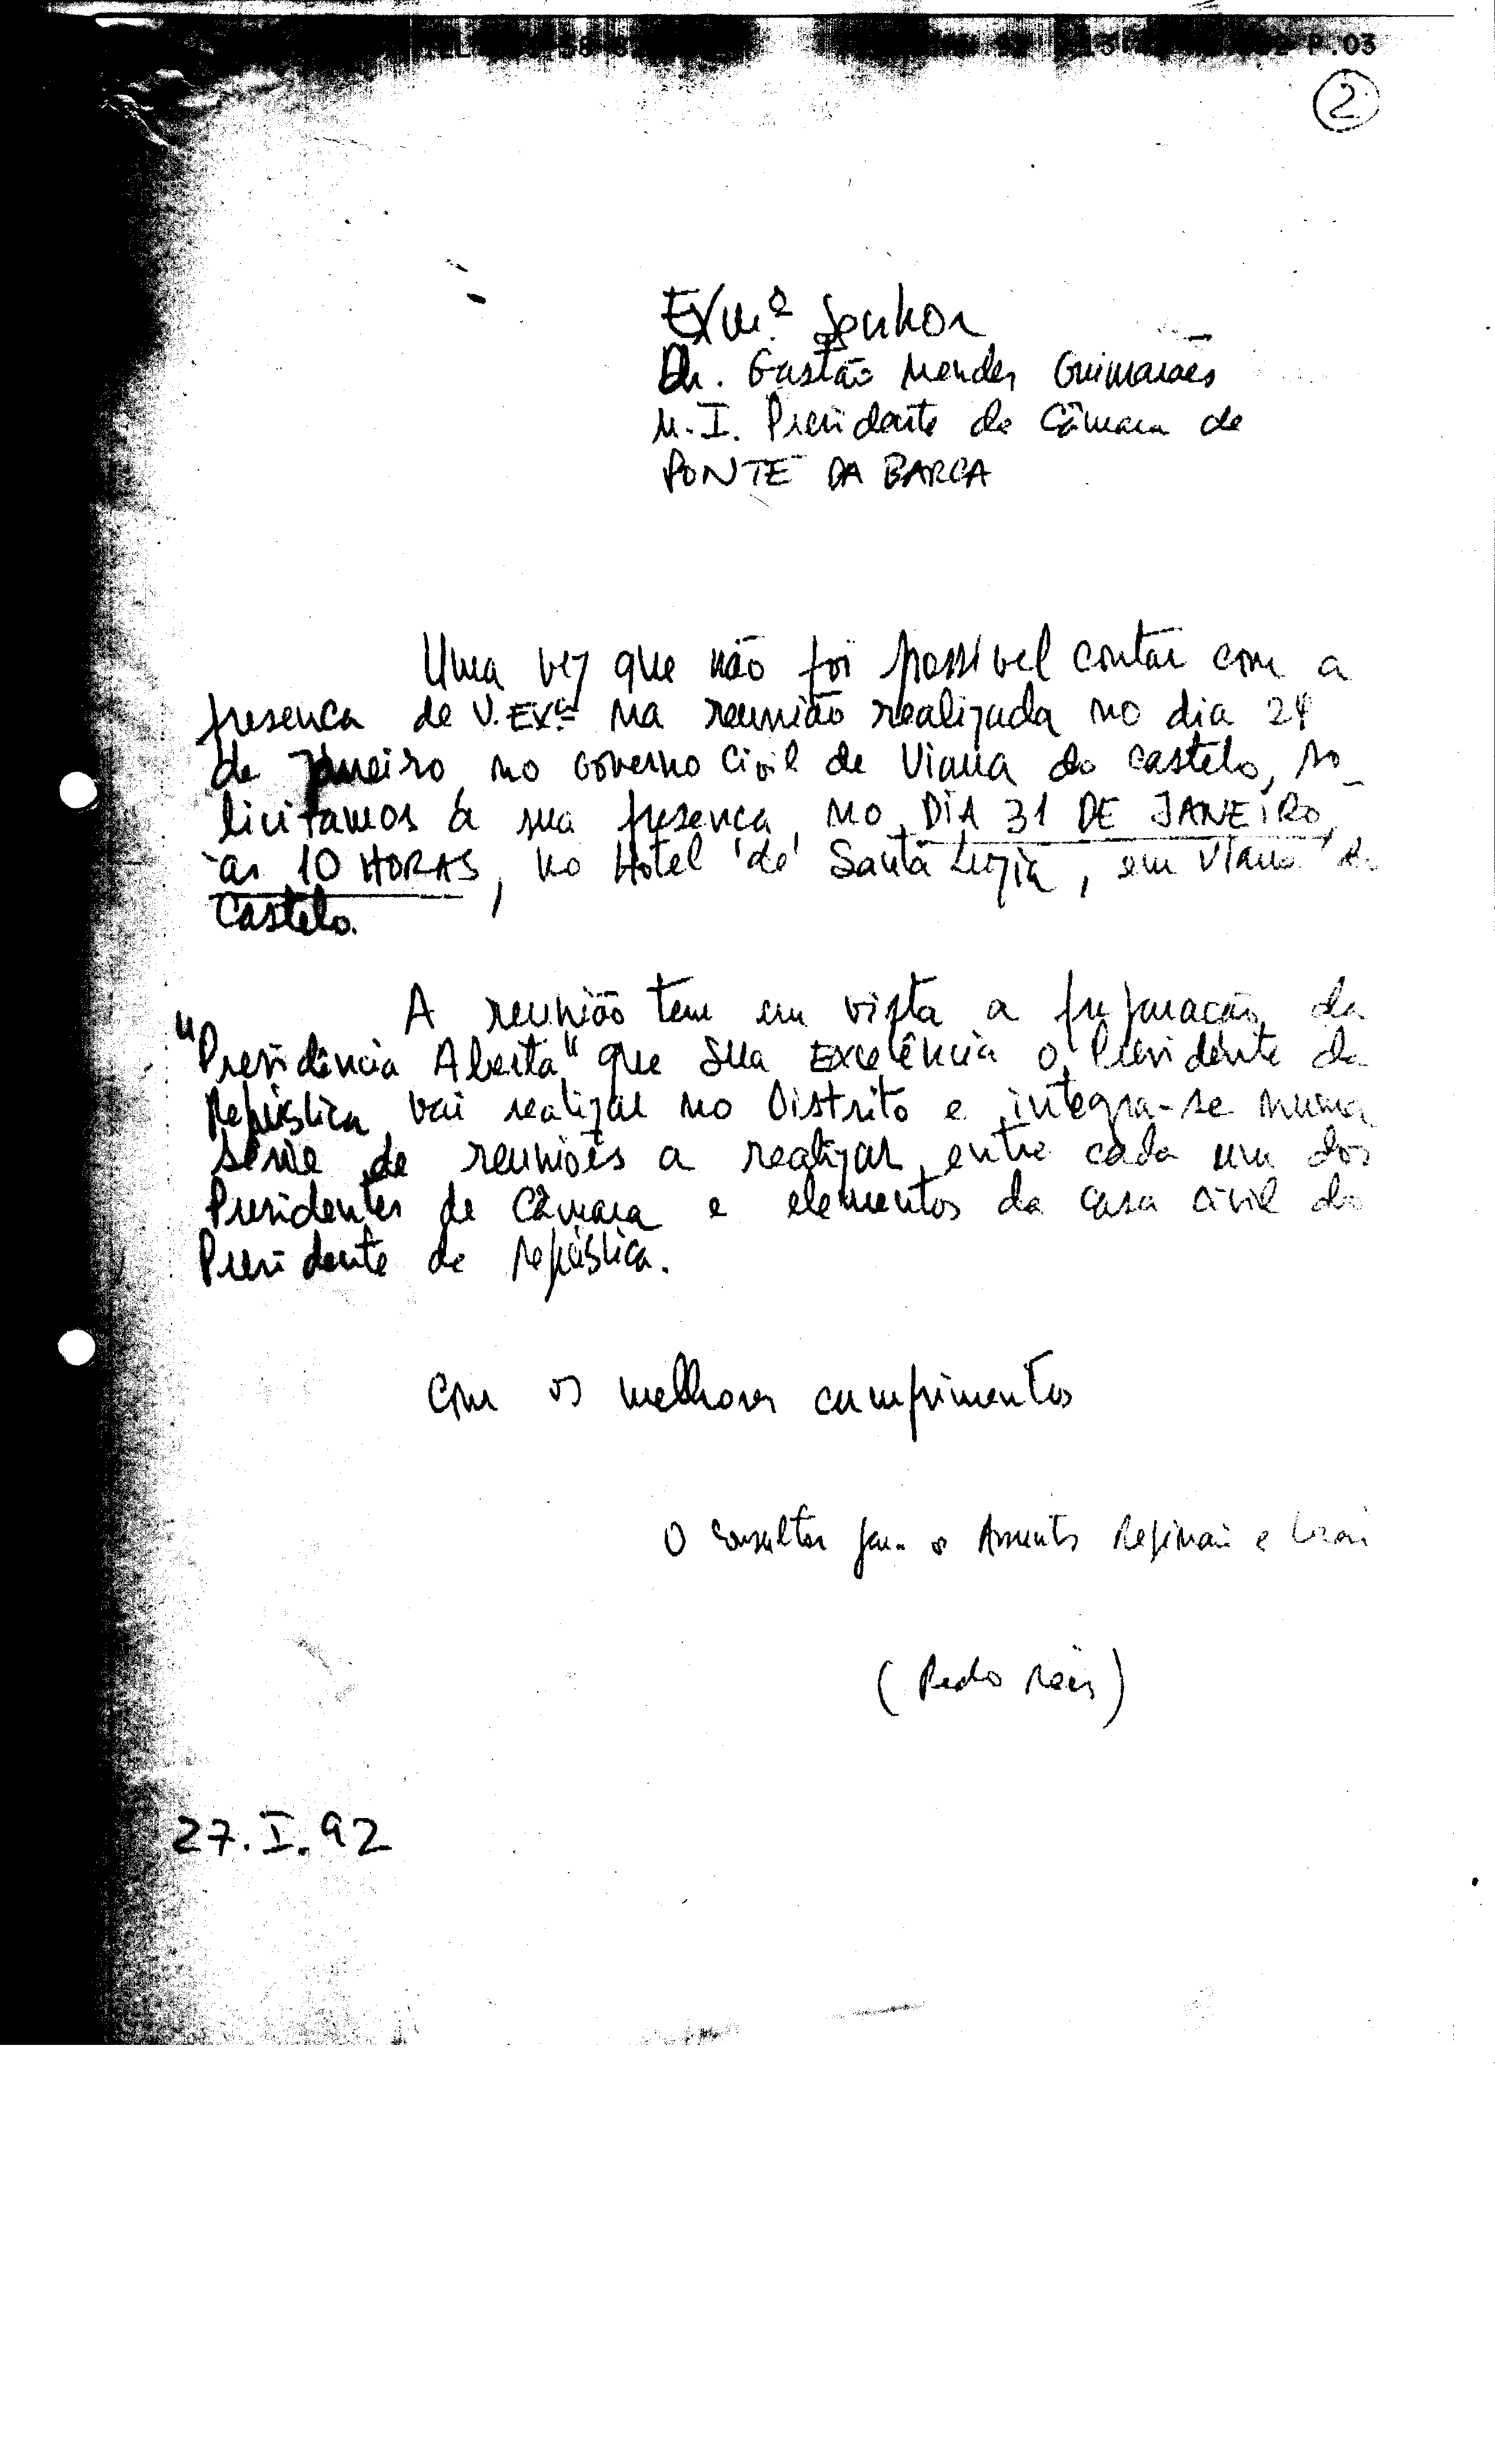 P.03
2
Exmº Senhor
Dr. Gastão Mendes Guimarães
M.I. Presidente da Câmara de
PONTE DA BARCA
Uma vez que não foi possível contar com a
presença de V. Exª na reunião realizada no dia 24
de Janeiro no Governo Civil de Viana do Castelo, so-
licitamos a sua presença, no DIA 31 DE JANEIRO,
às 10 HORAS, no Hotel de Santa Luzia, em Viana do
Castelo.
A reunião tem em vista a preparação da
"Presidência Aberta" que Sua Excelência o Presidente da
República vai realizar no Distrito e integra-se numa
série de reuniões a realizar entre cada um dos
Presidentes de Câmara e elementos da Casa Civil do
Presidente da República.
Com os melhores cumprimentos
O Consultor para os Assuntos Regionais e Locais
(Pedro Reis)
27.I.92